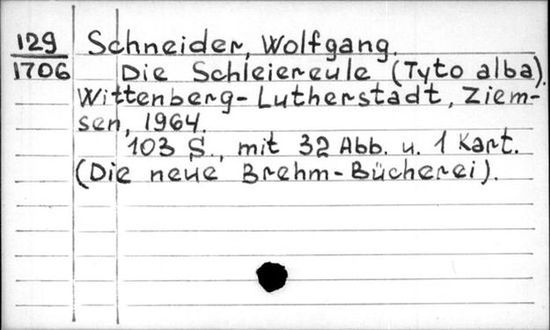 129
1706
Schneider, Wolfgang.
Die Schleiereule (Tyto alba).
Wittenberg-Lutherstadt, Ziem-
sen, 1964.
103 S., mit 32 Abb. u. 1 Kart.
(Die neue Brehm-Bücherei).